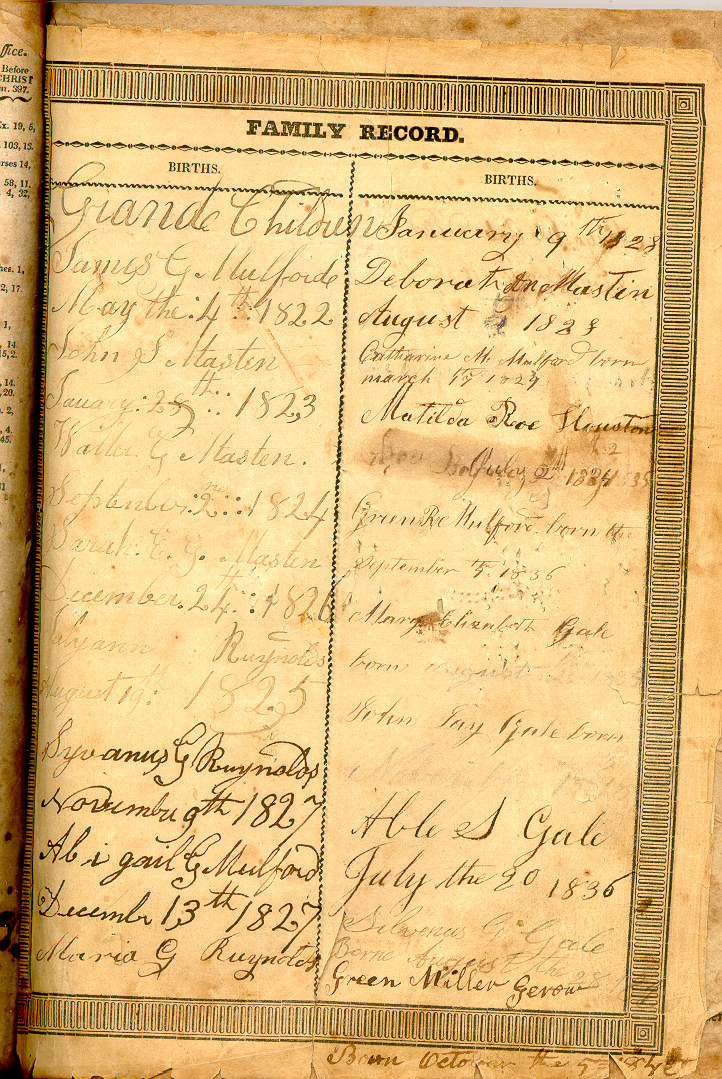 ffice.
Before
CHRIST
397.
19, 6,
103, 13.
14,
58, 11.
4, 32,
1,
2, 17
1,
14
14.
.20.
2,
4.
45.
FAMILY RECORD.
BIRTHS.
Grande Children
James G Mulforde
May the: 4th 1822
John S Masten
1823
Walter G Masten.
September: 2nd : 1824
Sarah. E. G. Masten
December. 24th : : 1826
Ruynolds
August 19th: 1825
Syvanus G Ruynolds
Novembu 9th 1827
Abigail G Mulford
Decembr 13th 1827
Maria G Ruynolds
BIRTHS.
January 9th 1828
Deborah An Mastin
August 1828
Catharine M. Mulford born
march 1829
Matilda Roe Houston
2th
Green R Mulford born the
September 1836
Mary Elizabeth Gale
born august
John Jay Gale born
Able S Gale
July the 20 1836
Silvenus G Gale
Borne August the 28
Green Miller Gerow
Born October the